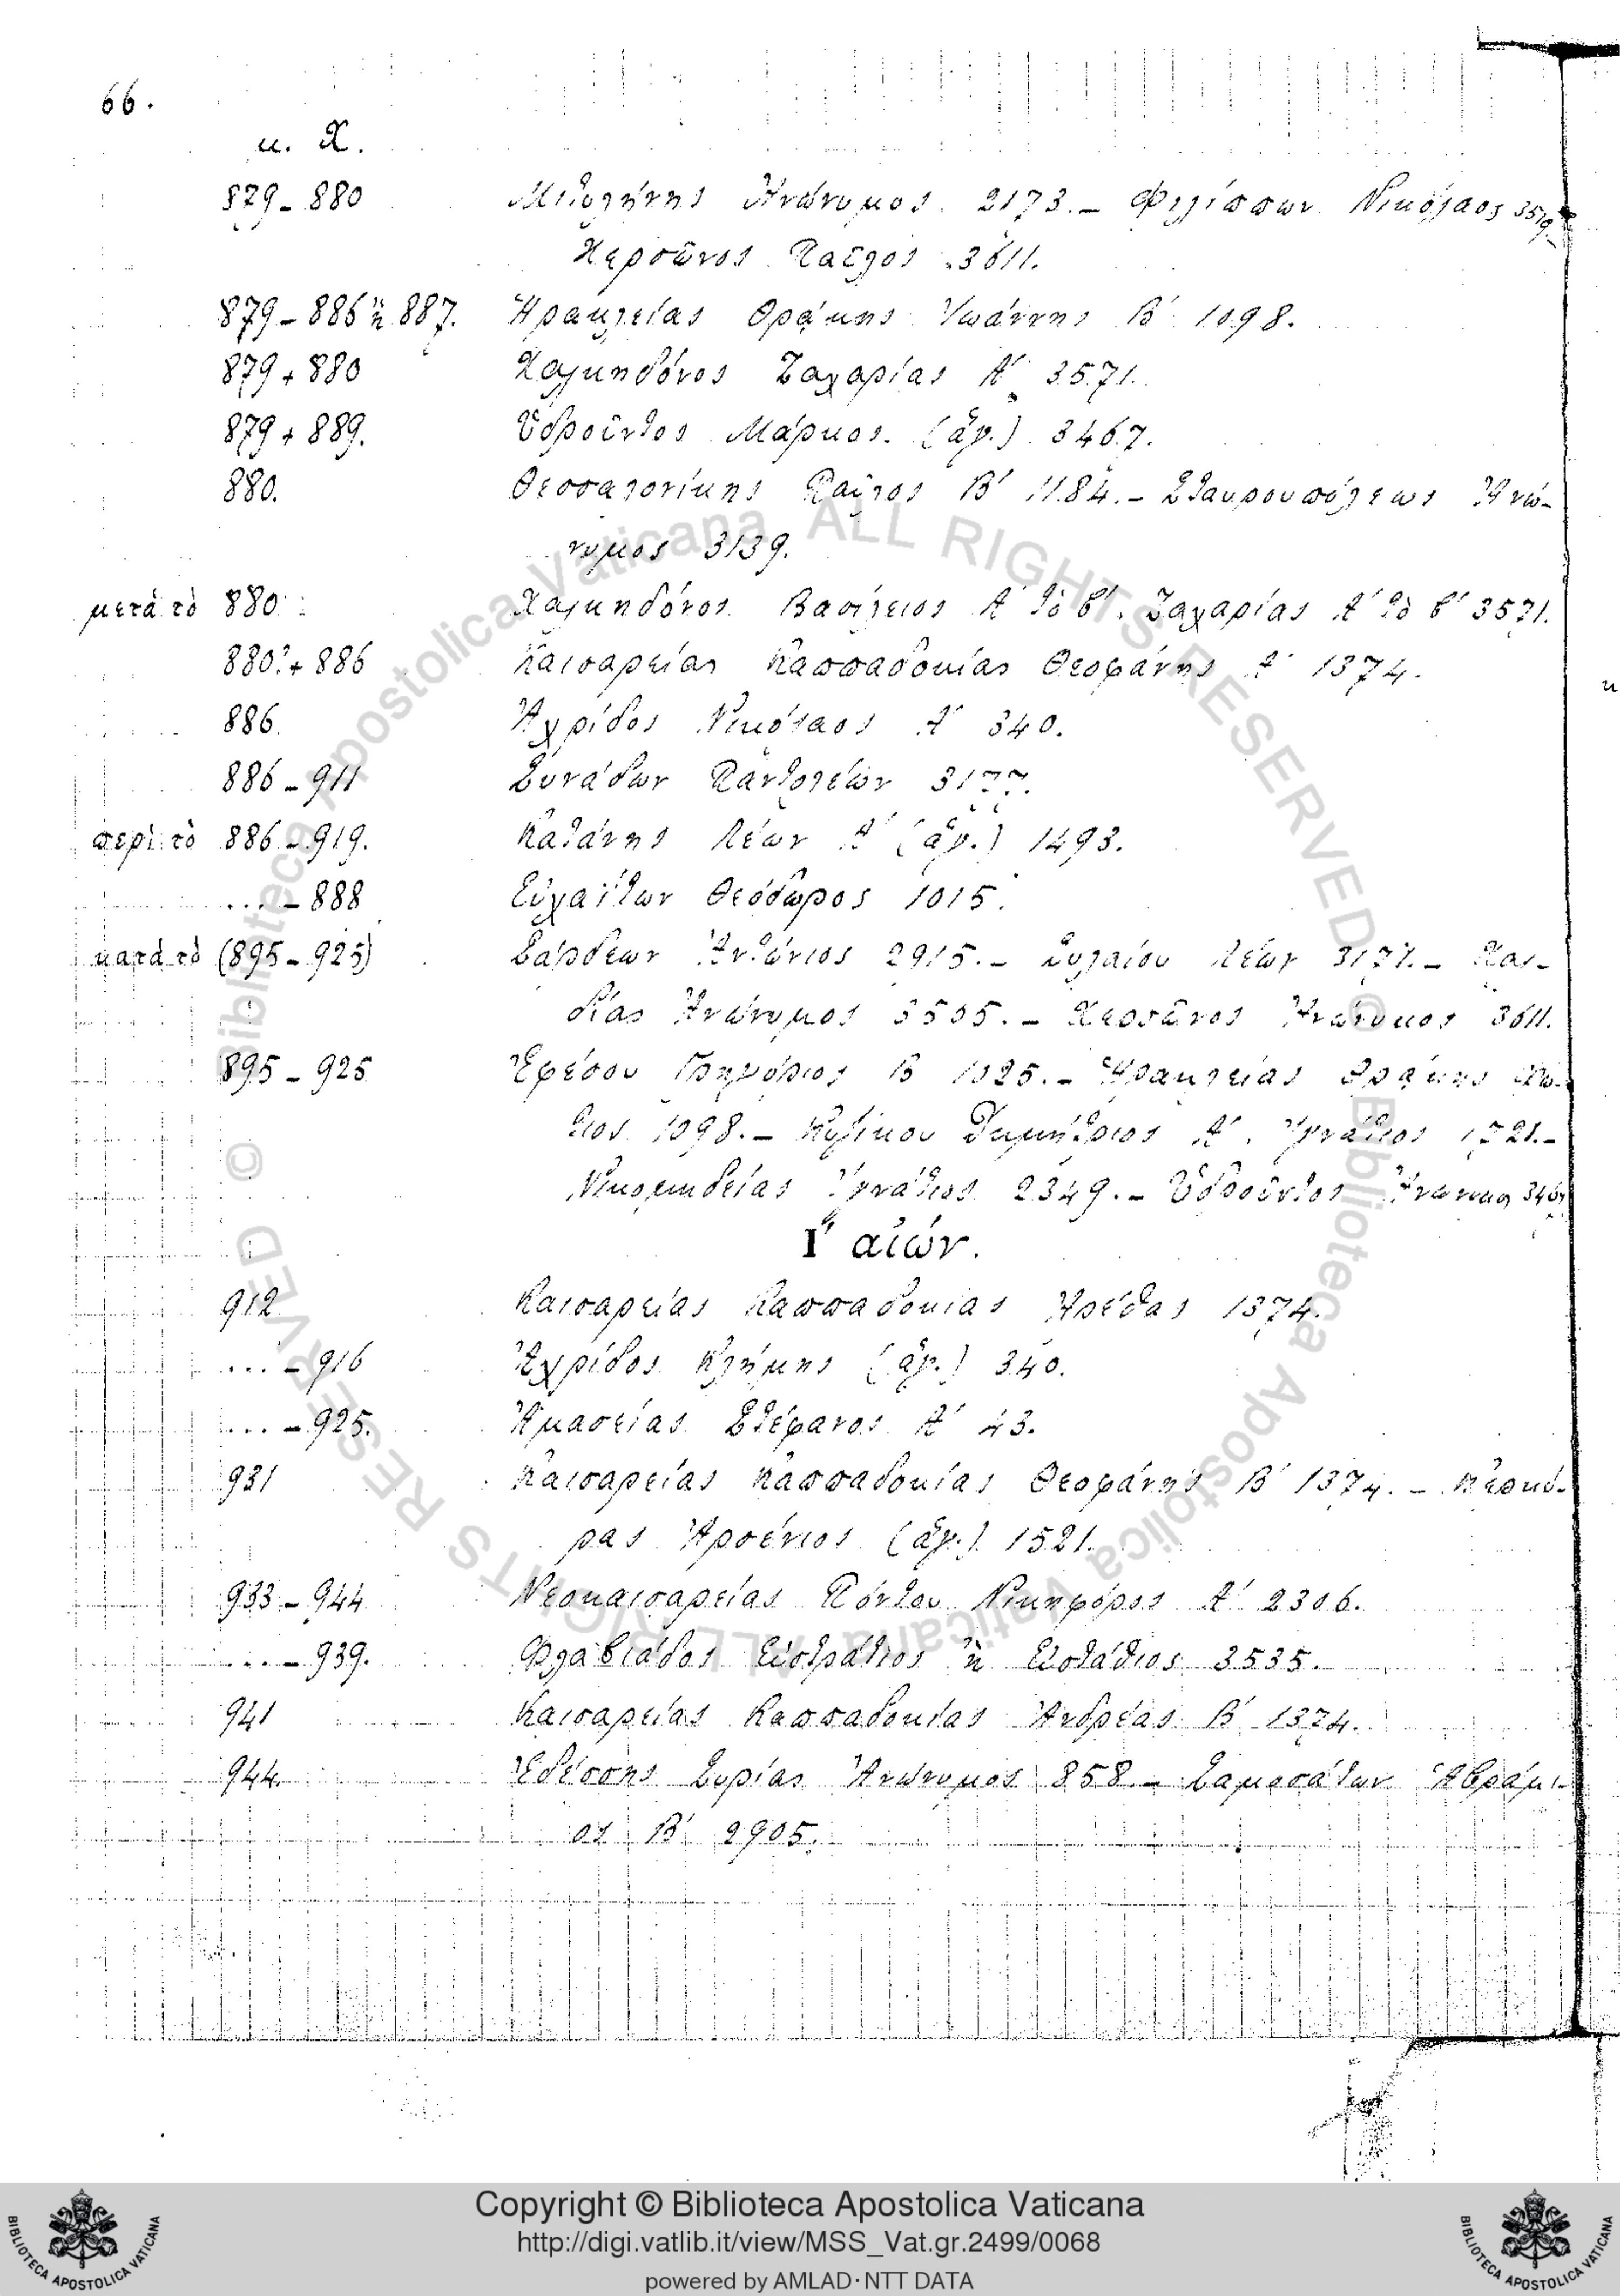 66.
μ. Χ.
879-880 Μιτυλήνης Ἀνώνυμος 2173.- Φιλίππων Νικόλαος 3519
Χερσῶνος Παῦλος 3611.
879-886 ἢ 887. Ἡρακλείας Θράκης Ἰωάννης Β' 1098.
879+880 Χαλκηδόνος Ζαχαρίας Α' 3571.
879+889. Ὑδροῦντος Μάρκος. (ἅγ.) 3467.
880. Θεσσαλονίκης Παῦλος Β' 1184.- Σταυρουπόλεως Ἀνώ-
νυμος 3139.
μετὰ τὸ 880 Χαλκηδόνος Βασίλειος Α' τὸ β'. Ζαχαρίας Α' τὸ β' 3571.
880?+886 Καισαρείας Καππαδοκίας Θεοφάνης Α' 1374.
886 Ἀχρίδος Νικόλαος Α' 340.
886-911 Συνάδων Πανταλέων 3177.
περὶ τὸ 886-919. Κατάνης Λέων Α' (ἅγ.) 1493.
...-888 Εὐχαΐτων Θεόδωρος 1015.
κατὰ τὸ (895-925) Σάρδεων Ἀντώνιος 2915.- Συλαίου Λέων 3171.- Χαλ-
δίας Ἀνώνυμος 3505.- Χερσῶνος Ἀνώνυμος 3611.
895-925 Ἐφέσου Γρηγόριος Β' 1025.- Ἡρακλείας Θράκης Φώ-
τιος 1098.- Κυζίκου Δημήτριος Α'. Ἰγνάτιος 1721.-
Νικομηδείας Ἰγνάτιος 2349.- Ὑδροῦντος Ἀνώνυμος 3467
Ι' αἰών.
912 Καισαρείας Καππαδοκίας Ἀρέθας 1374.
...-916 Ἀχρίδος Κλήμης (ἅγ.) 340.
...-925. Ἀμασείας Στέφανος Α' 43.
931 Καισαρείας Καππαδοκίας Θεοφάνης Β' 1374.- Κερκύ-
ρας Ἀρσένιος (ἅγ.) 1521.
933-944 Νεοκαισαρείας Πόντου Νικηφόρος Α' 2306.
...-939. Φλαβιάδος Εὐστράτιος ἢ Εὐστάθιος 3535.
941 Καισαρείας Καππαδοκίας Ἀνδρέας Β' 1374.
944. Ἐδέσσης Συρίας Ἀνώνυμος 858.- Σαμοσάτων Ἀβράμι-
ος Β' 2905.
Copyright © Biblioteca Apostolica Vaticana
http://digi.vatlib.it/view/MSS_Vat.gr.2499/0068
powered by AMLAD·NTT DATA